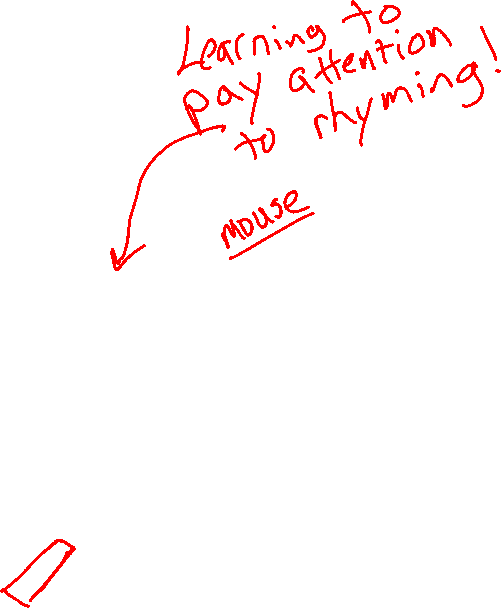 Learning to
pay attention
to rhyming!
mouse